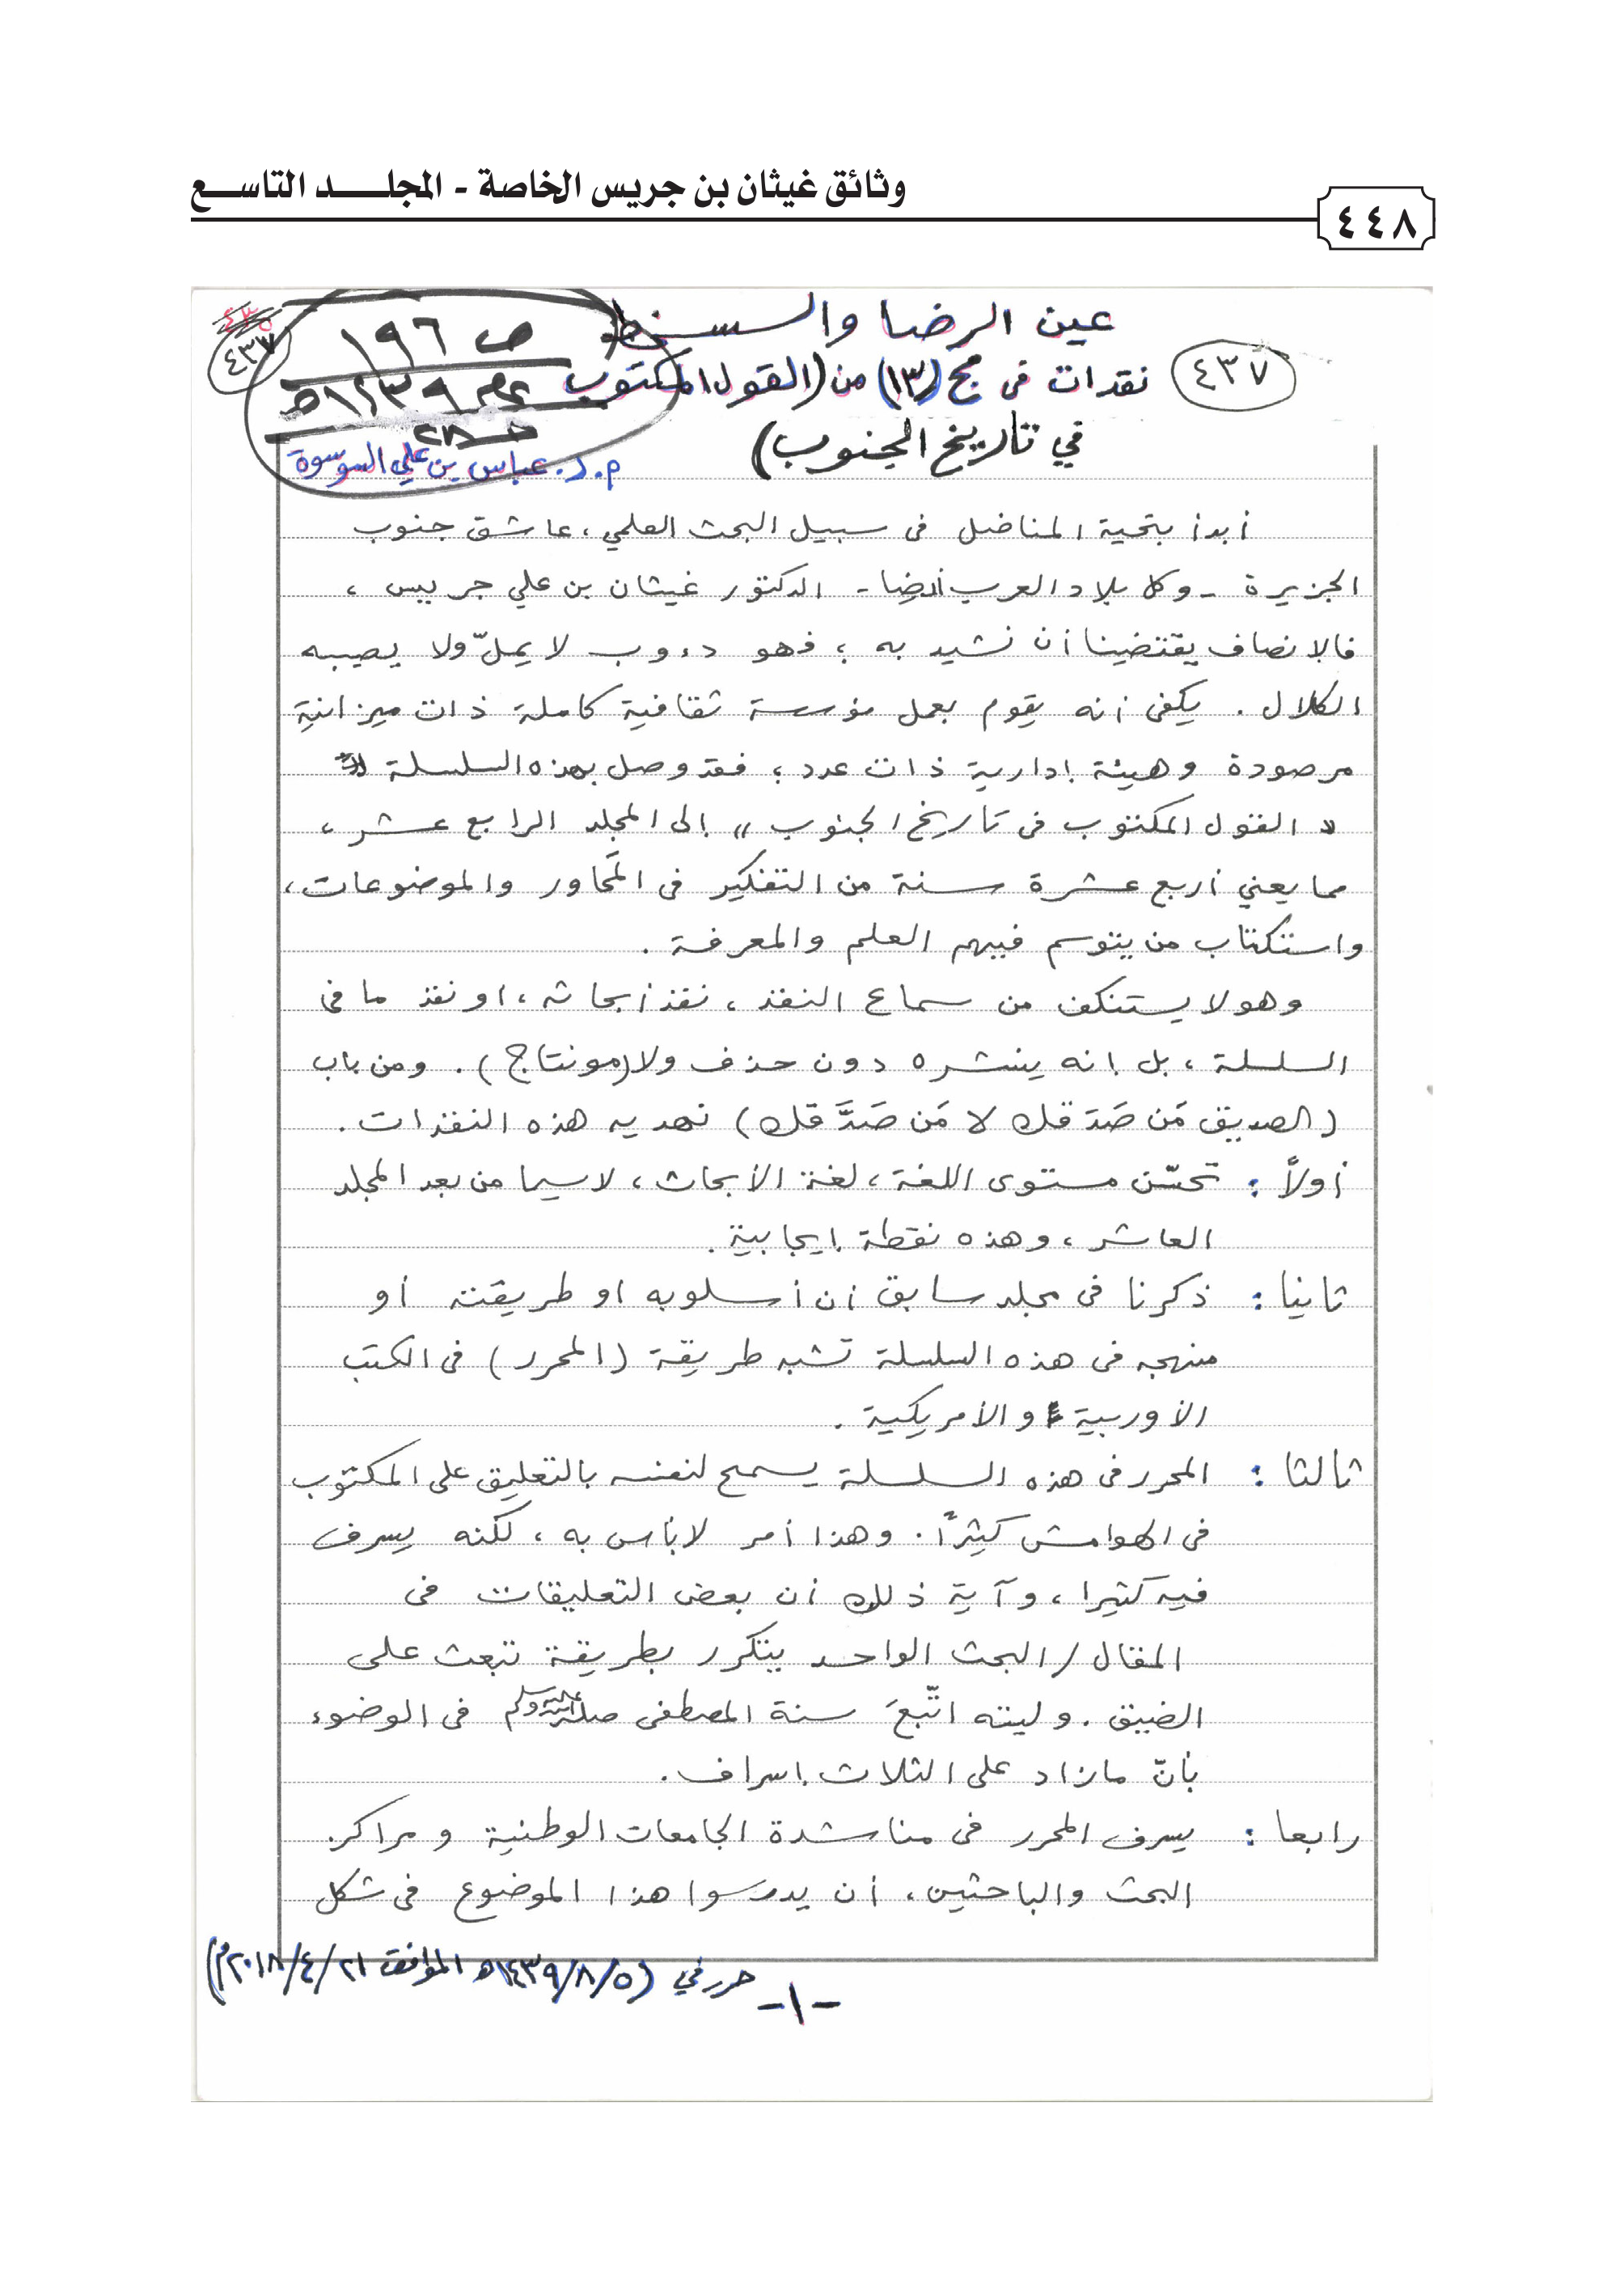 وثائق غيثان بن جريس الخاصة - المجلد التاسع
٤٤٨
عين الرضا والسخط
ص ١٩٦
٤٣٧
٤٣٧
نقدات في مج (١٣) من (القول المكتوب
في تاريخ الجنوب)
م.د. عباس بن علي السوسوة
أبدأ بتحية المناضل في سبيل البحث العلمي، عاشق جنوب
الجزيرة - وكل بلاد العرب أيضا - الدكتور غيثان بن علي جريس،
فالانصاف يقتضينا أن نشيد به ؛ فهو دءوب لا يملّ ولا يصيبه
الكلال. يكفي أنه يقوم بعمل مؤسسة ثقافية كاملة ذات ميزانية
مرصودة وهيئة إدارية ذات عدد ؛ فقد وصل بهذه السلسلة
« القول المكتوب في تاريخ الجنوب » إلى المجلد الرابع عشر،
مما يعني أربع عشرة سنة من التفكير في المَحاور والموضوعات،
واستكتاب من يتوسم فيهم العلم والمعرفة.
وهو لا يستنكف من سماع النقد، نقد أبحاثه، او نقد ما في
السلسلة، بل إنه ينشره دون حذف ولا (مونتاج). ومن باب
(الصديق مَن صَدَقك لا مَن صَدَّقك) نهديه هذه النقدات.
أولاً : تحسّن مستوى اللغة، لغة الأبحاث، لاسيما من بعد المجلد
العاشر، وهذه نقطة إيجابية.
ثانيا : ذكرنا في مجلد سابق أن أسلوبه او طريقته أو
منهجه في هذه السلسلة تشبه طريقة (المحرر) في الكتب
الأوربية والأمريكية.
ثالثا : المحرر في هذه السلسلة يسمح لنفسه بالتعليق على المكتوب
في الهوامش كثيرًا. وهذا أمر لا بأس به، لكنه يسرف
فيه كثيرا، وآية ذلك أن بعض التعليقات في
المقال / البحث الواحد يتكرر بطريقة تبعث على
الضيق. وليته اتّبعَ سنة المصطفى صلى الله عليه وسلم في الوضوء
بأنّ مازاد على الثلاث إسراف.
رابعا : يسرف المحرر في مناشدة الجامعات الوطنية ومراكز
البحث والباحثين، أن يدرسوا هذا الموضوع في شكل
حرر في (١٤٣٩/٨/٥هـ الموافق ٢٠١٨/٤/٢١م)
-١-